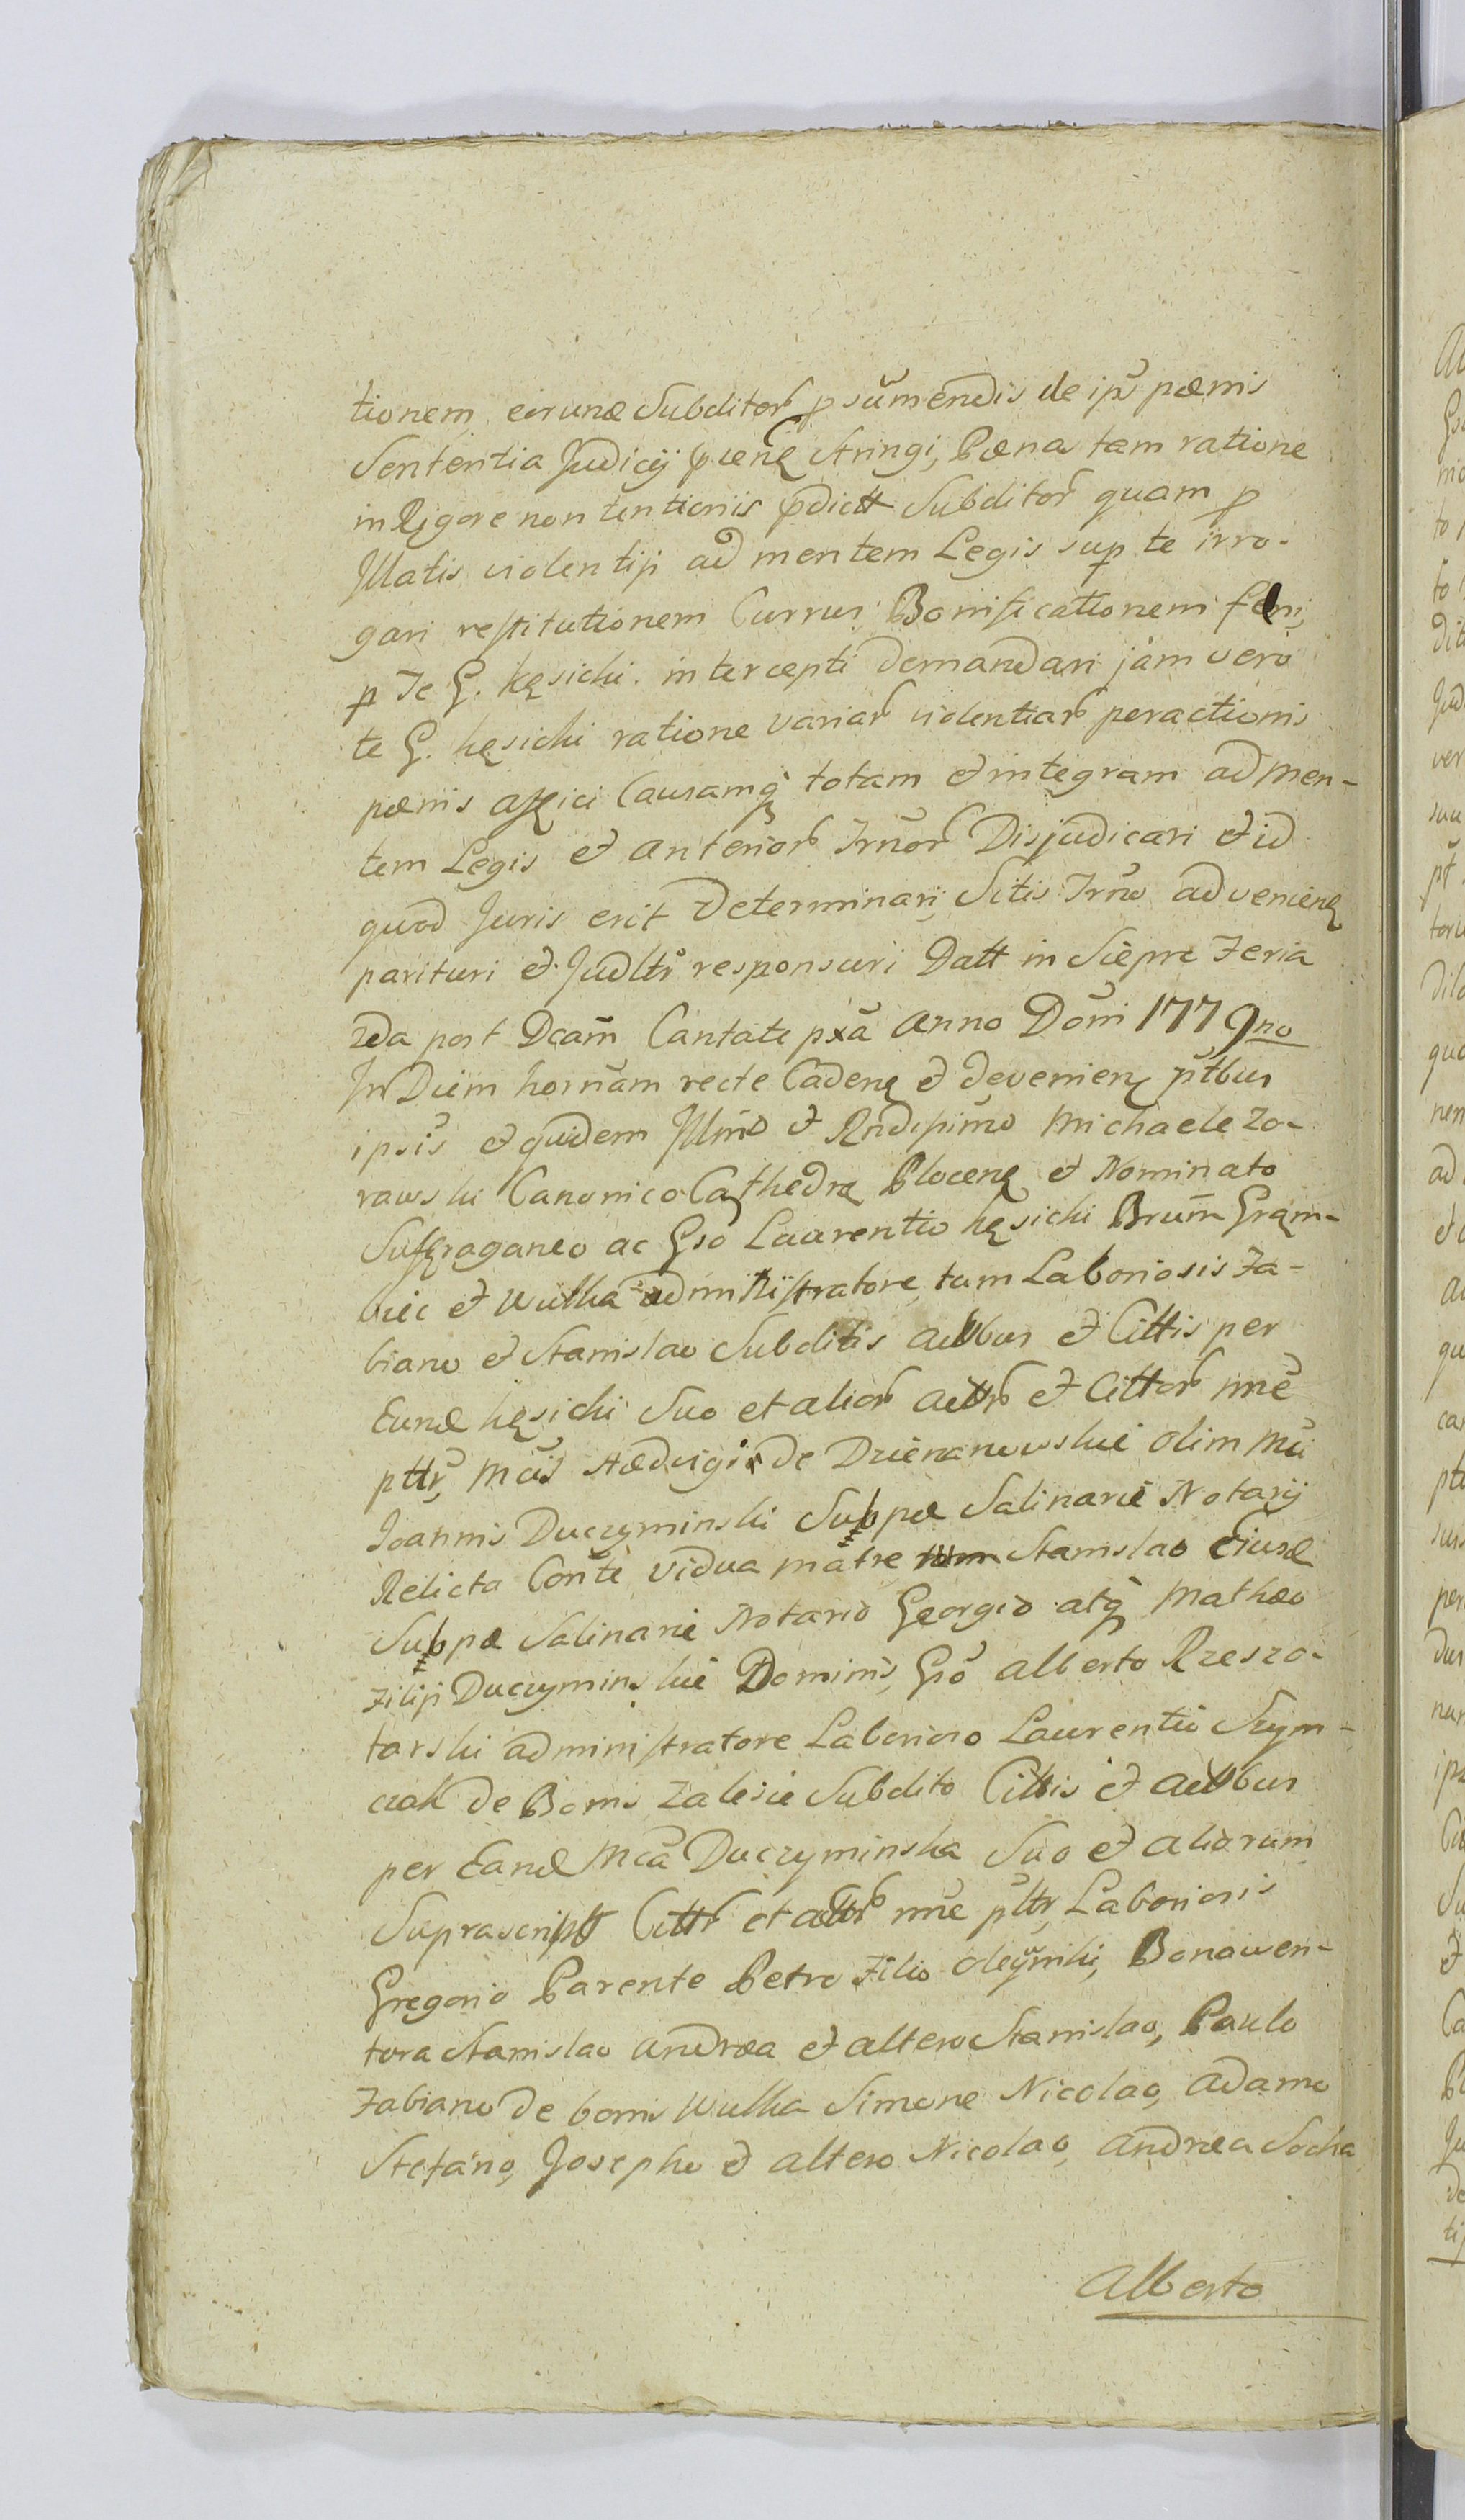 tionem eorund Subditor p sumendis de ips pœnis
Sententia Judicij præn Stringi, Pœna tam ratione
in Rigore non tentionis pdictt Subditor quam p
Illatis violentiji ad mentem Legis sup te irro-
gari restitutionem Currus Bonificationem fæni
p Te G. Kęsicki intercepti demandari jam vero
te G. Kęsicki ratione variar violentiar peractionis
pœnis affici Causamq totam et integram ad men-
tem Legis et anterior Trnor Disjudicari et id
quod Juris erit Determinari, Sitis Trno advenien
parituri et Judltr responsuri Datt in Sierpre Feria
2da post Dcam Cantate pxa Anno Domi 1779no
In Diem hornam recte Caden et devenien ptbus
ipsis et quidem Illmo et Rndissimo Michaele Zo-
rawski Canonico Cathedr Plocen et Nominato
Suffraganeo ac Gso Laurentio Kęsicki Brum Gręm-
biec et Wulka administratore, tum Laboriosis Fa-
biano et Stanislao Subditis acttbus et Cittis per
Eund Kęsicki Suo et alior acttr et Cittor nne
pttr, Mcis Hedvigi de Dzienanowskie olim Mci
Joannis Duczyminski Subpæ Salinarie Notarij
Relicta Conte vidua matre Stanislao Eiusd
Subpæ Salinarie Notario Georgio atq Mathæo
Filiji Duczyminskie Dominis, Gso Alberto Rzeszo-
tarski administratore Laborioso Laurentio Szym-
czak de Bonis Zalesie Subdito Cittis et acttbus
per Eand Mca Duczyminska Suo et aliorum
Suprascriptt Cittr et acttr nne pttr, Laboriosis
Gregorio Parente Petro Filio Oleynik, Bonawen-
tura Stanislao Andræa et altero Stanislao, Paulo
Fabiano de bonis Wulka Simone Nicolao, Adamo
Stefano, Josepho et altero Nicolao, Andræa Socha
Alberto